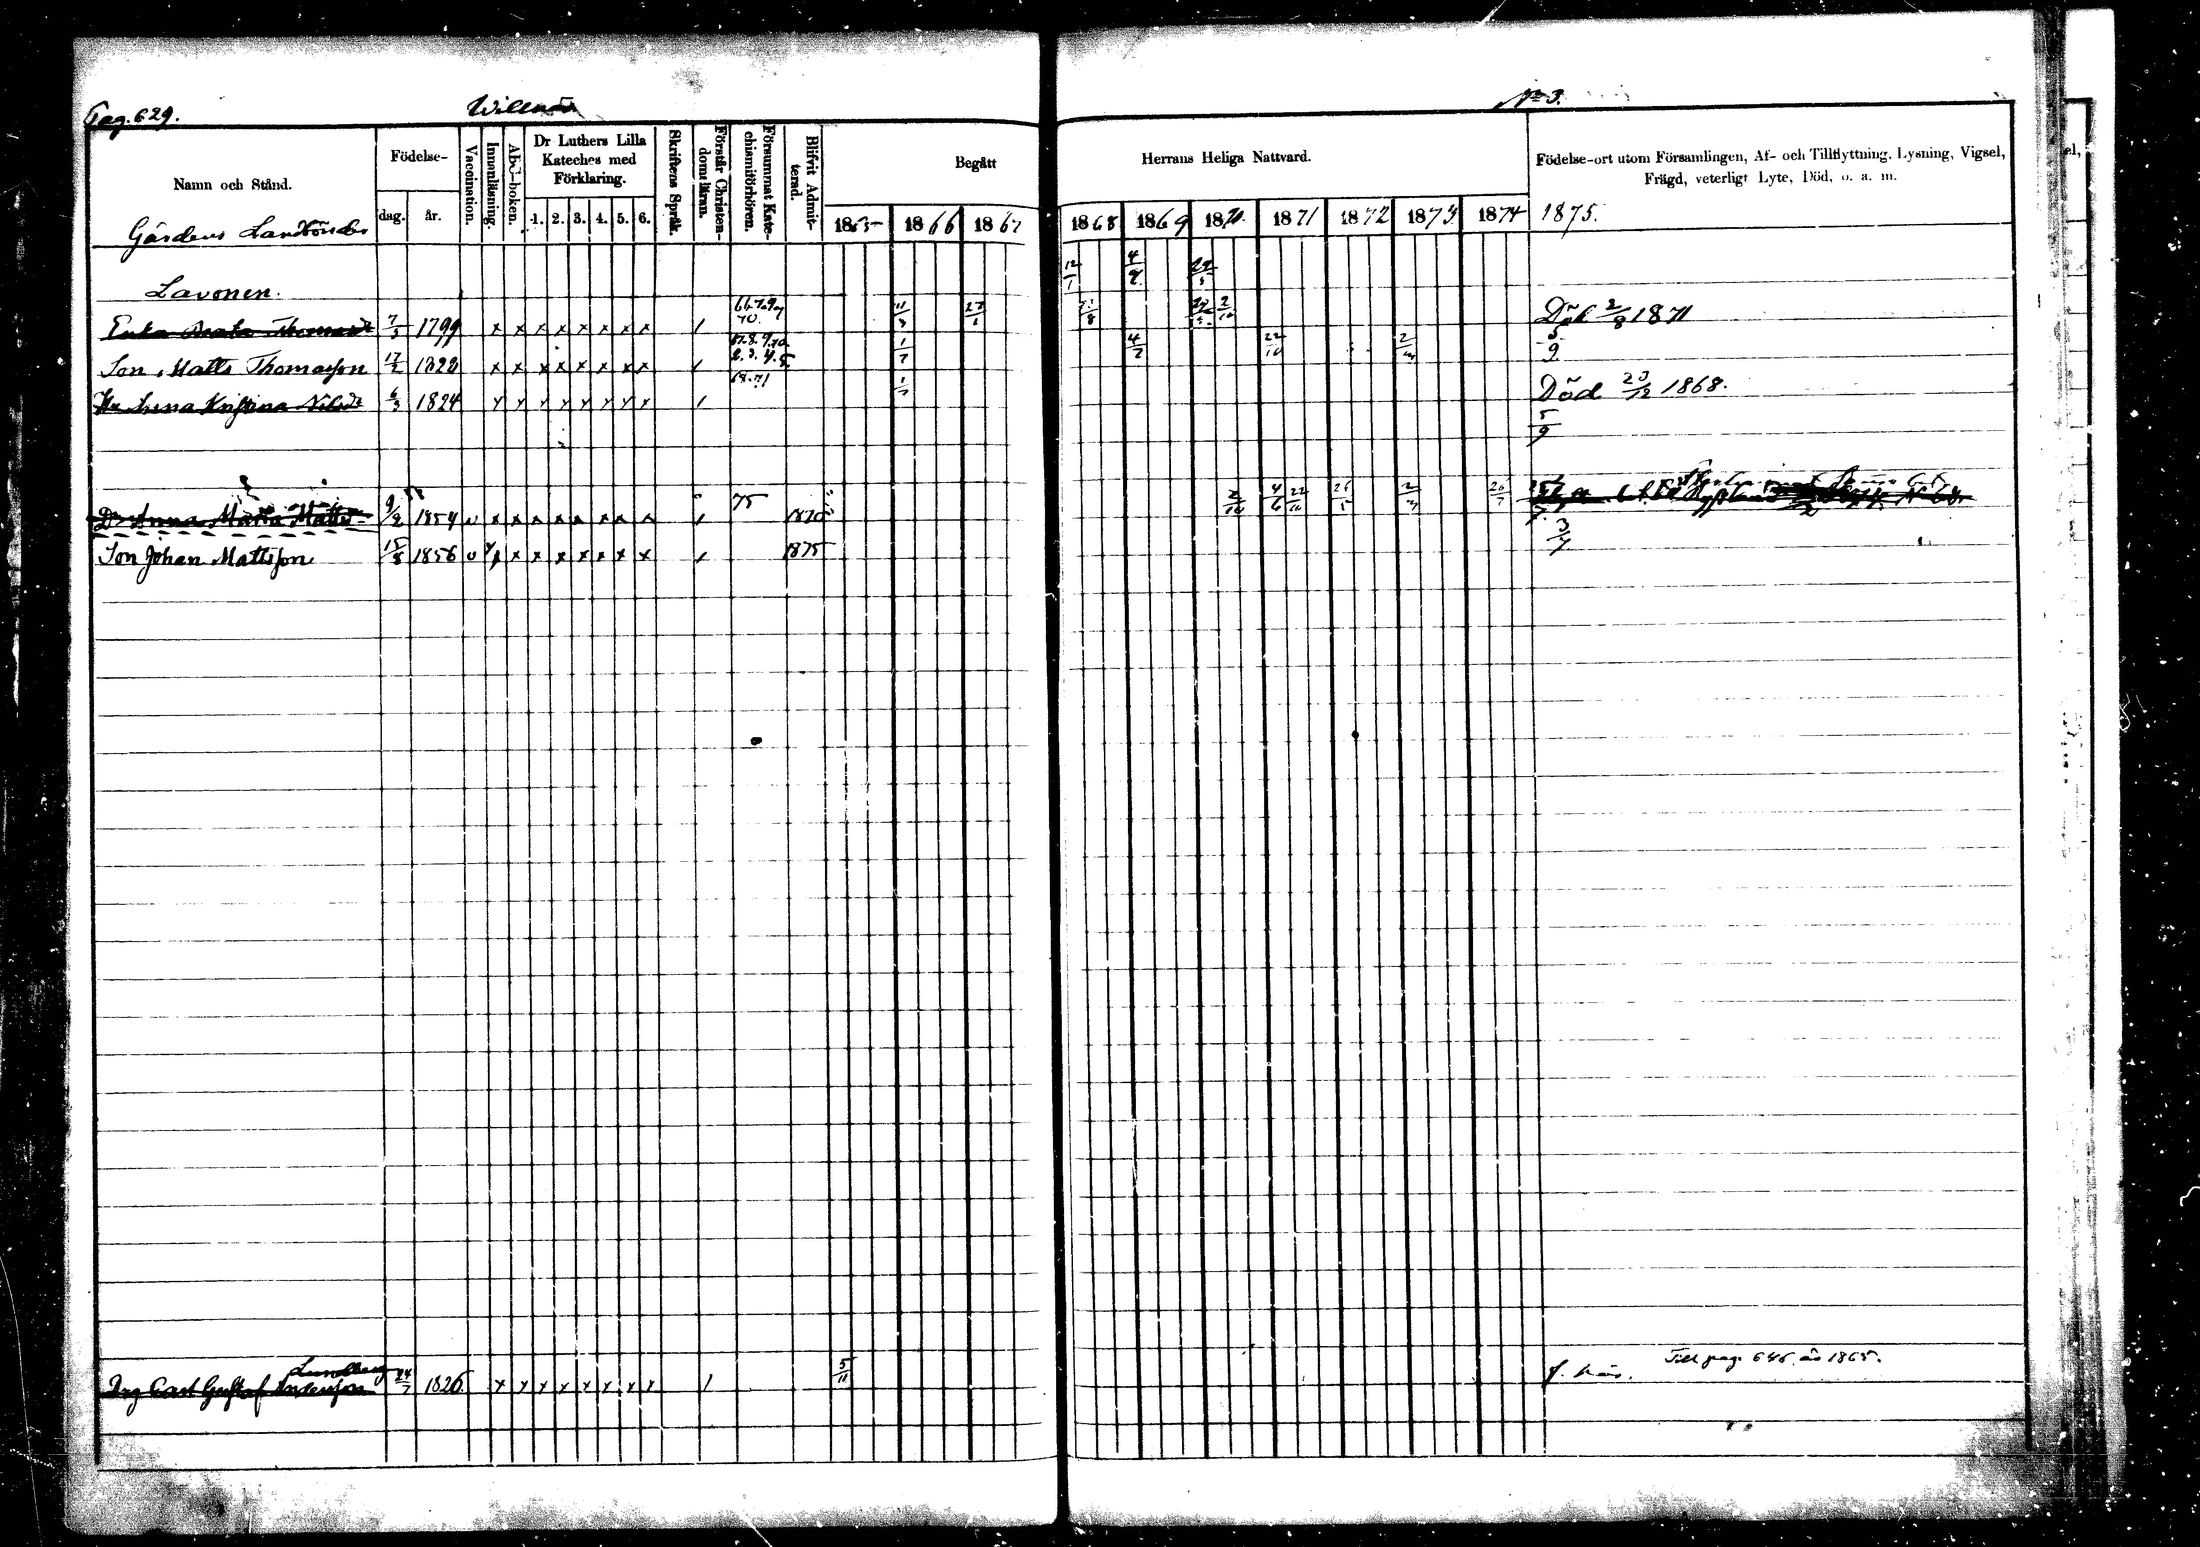 Pag. 629.
Willnäs
No 3.
Namn och Stånd.
Födelse-
dag.
år.
Vaccination.
Innanläsning.
ABC-boken.
Dr Luthers Lilla Kateches med Förklaring.
1. 2. 3. 4. 5. 6.
Skriftens Språk.
Förstår Christendomsläran.
Försummat Katechismiförhören.
Blifvit Admitterad.
Begått Herrans Heliga Nattvard.
1865 1866 1867 1868 1869 1870 1871 1872 1873 1874
Födelse-ort utom Församlingen, Af- och Tillflyttning, Lysning, Vigsel,
Frägd, veterligt Lyte, Död, o. a. m.
1875.
Gårdens Landbönder
12/1 4/2
Lavonen.
Thomasdr 7/3 1799 x x x x x x x x 1 27/1 2/10 Död 2/8 1871
Son Matts Thomasson 17/2 1828 x x x x x x x x 1 1/7 4/2 22/10 5/9
Hu Anna Kristina Nilsdr 6/3 1824 x x x x x x x x 1 68.71 1/7 Död 23/12 1868.
5/9
Dr Anna Maria Mattsdr 9/2 1854 v x x x x x x x x 1 75 1870 2/10 4/6 22/10 26/7
Son Johan Mattsson 15/8 1856 v x x x x x x x x 1 1875 3/7
Lundberg
Drg Carl Gustaf Andersson 24/7 1826. x x x x x x x x 1 5/11 f. Till pag. 646 år 1865.